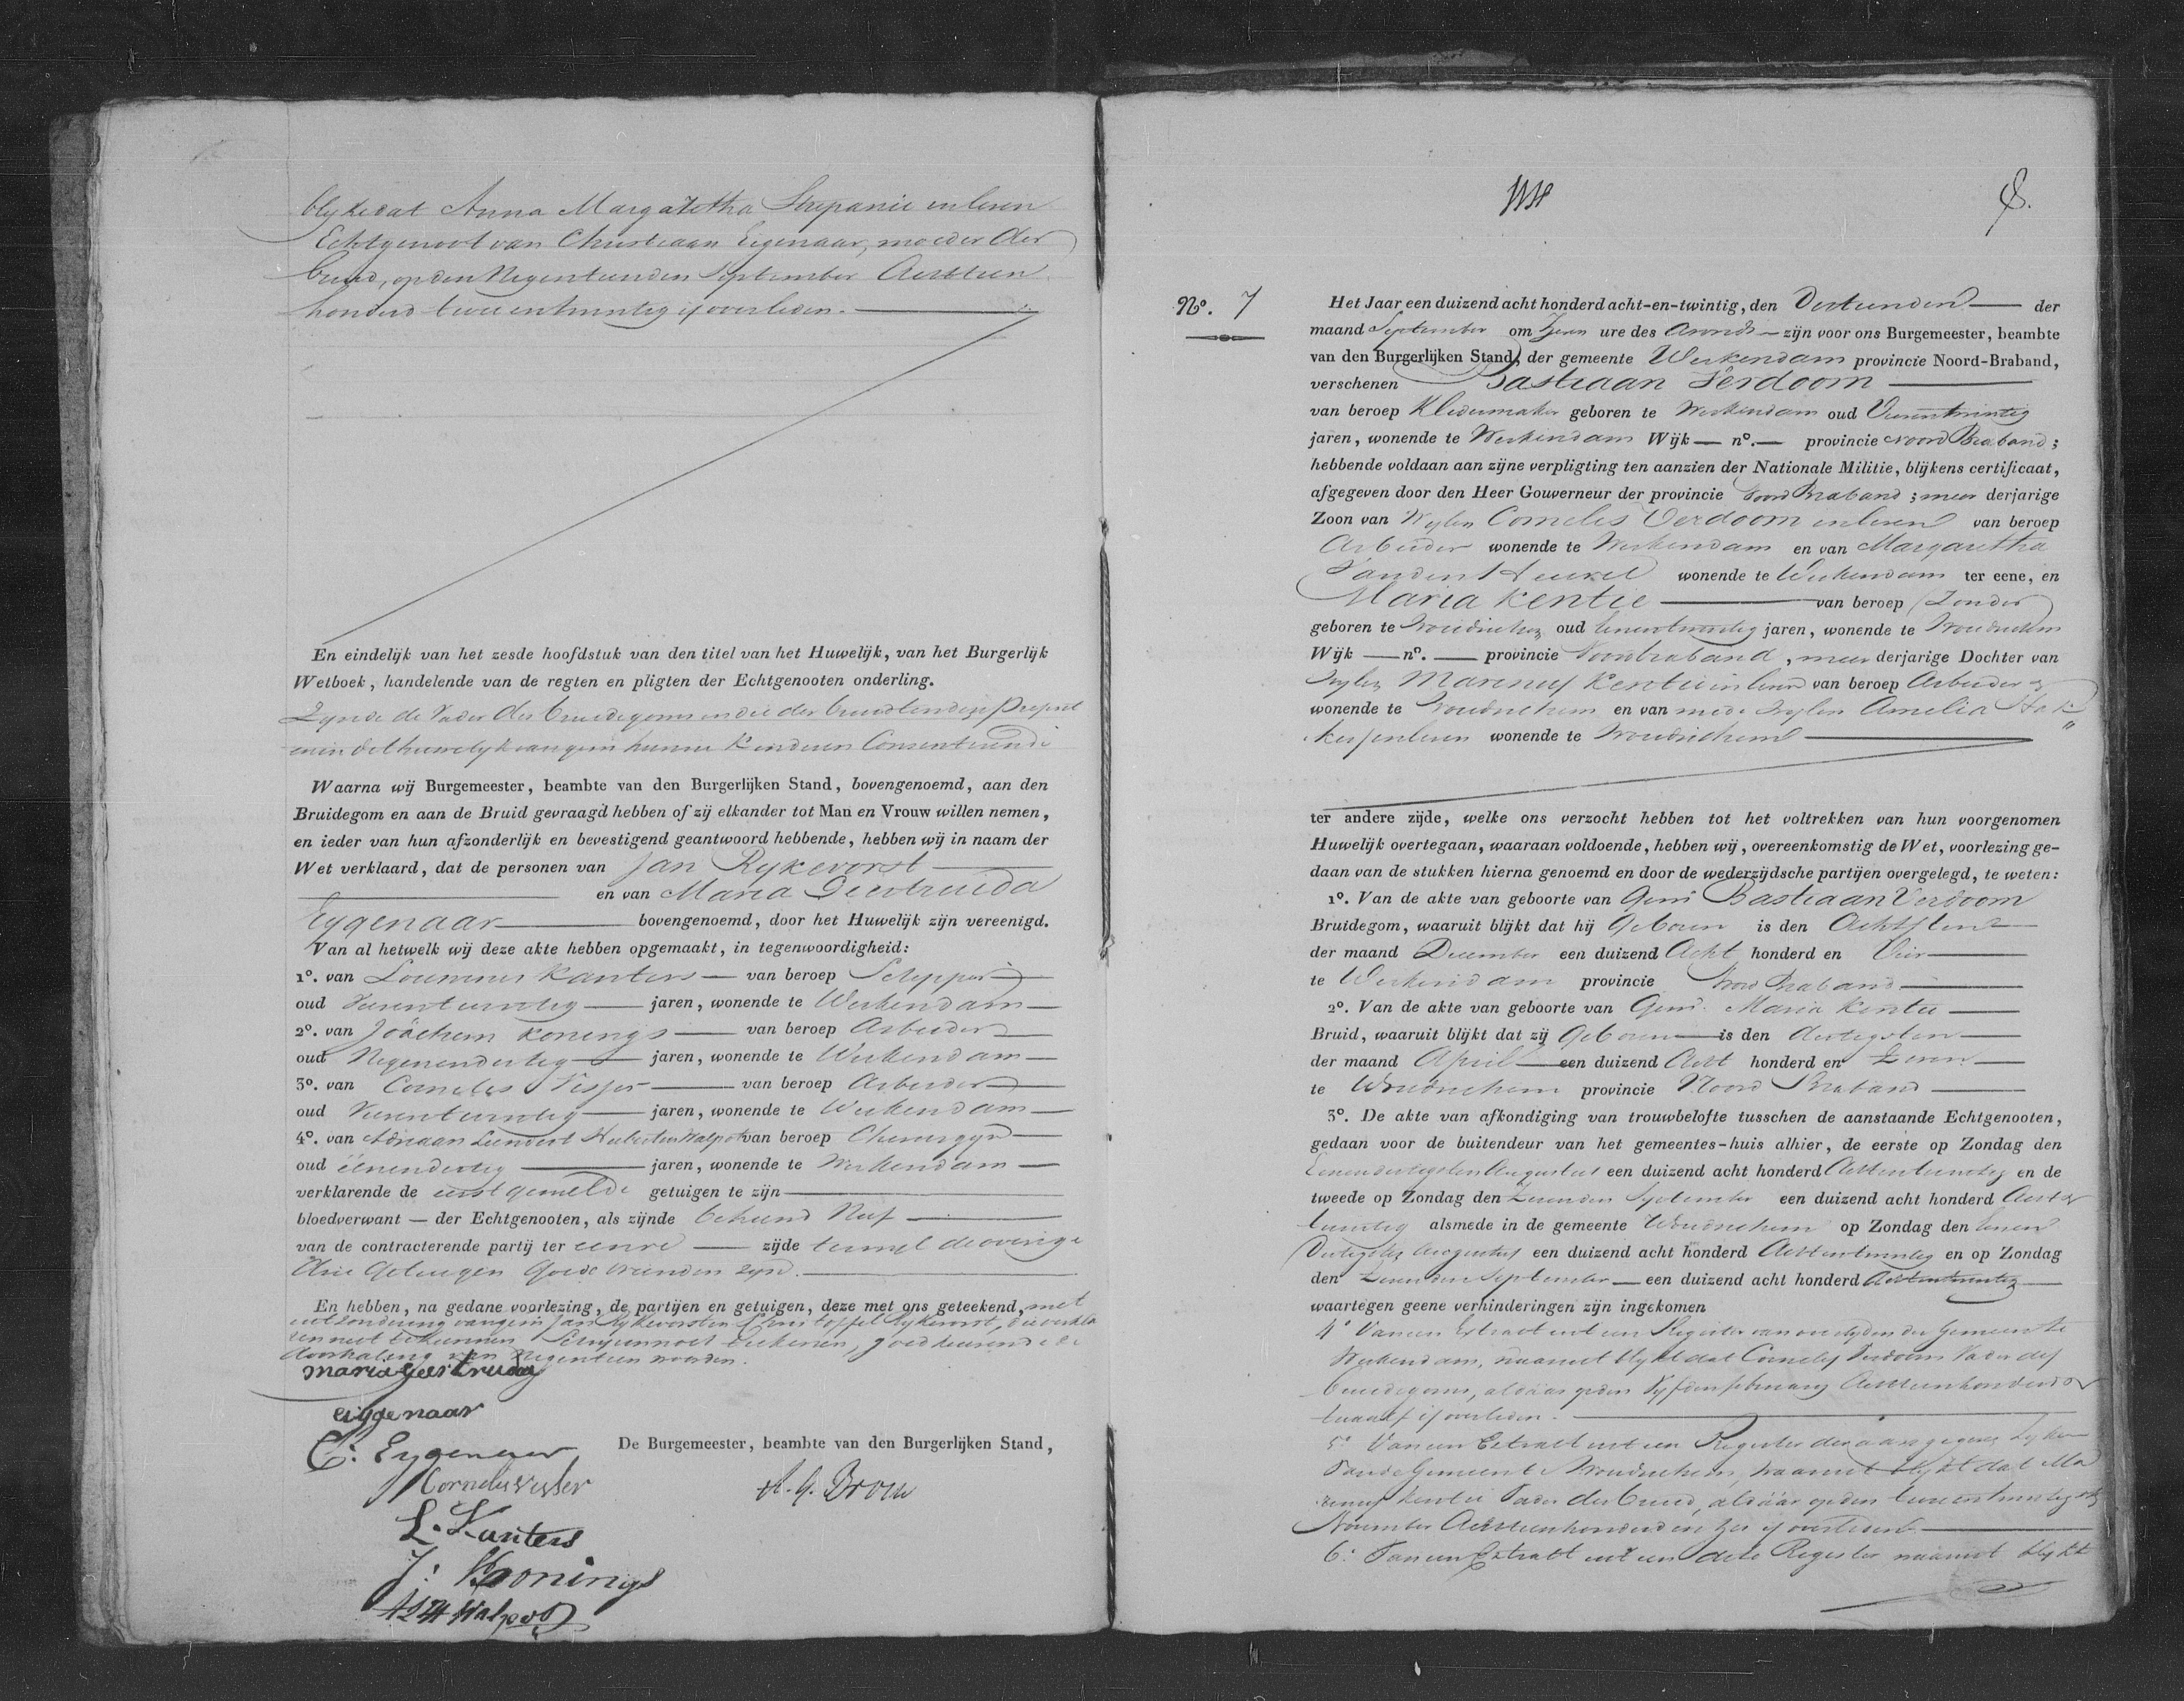 blykt dat Anna Margaretha Strepanie in leven
Echtgenoot van Christiaan Eigenaar, moeder der
bruid, op den Negentienden September Achttien
honderd twee en twintig is overleden.
En eindelijk van het zesde hoofdstuk van den titel van het Huwelijk, van het Burgerlijk
Wetboek, handelende van de regten en pligten der Echtgenooten onderling.
Zynde de Vader des bruidegoms en die der bruid ten deze present
en in het huwelyk van hunne Kinderen Consenteerende
Waarna wij Burgemeester, beambte van den Burgerlijken Stand, bovengenoemd, aan den
Bruidegom en aan de Bruid gevraagd hebben of zij elkander tot Man en Vrouw willen nemen,
en ieder van hun afzonderlijk en bevestigend geantwoord hebbende, hebben wij in naam der
Wet verklaard, dat de personen van Jan Rykevorst
en van Maria Geertruida
Eygenaar bovengenoemd, door het Huwelijk zijn vereenigd.
Van al hetwelk wij deze akte hebben opgemaakt, in tegenwoordigheid:
1º. van Lourens Kanters van beroep Schipper
oud Vierentwintig jaren, wonende te Werkendam
2º. van Joächem Konings van beroep Arbeider
oud Negenendertig jaren, wonende te Werkendam
3º. van Cornelis Visser van beroep Arbeider
oud Vierentwintig jaren, wonende te Werkendam
4º. van Adriaan Leendert Hubertus Walpot van beroep Chirurgyn
oud eenendertig jaren, wonende te Werkendam
verklarende de eerstgemelde getuigen te zijn
bloedverwant — der Echtgenooten, als zijnde behuwd Neef
van de contracterende partij ter eenre zijde terwyl de overige
drie Getuigen Goede vrienden zyn.
En hebben, na gedane voorlezing, de partijen en getuigen, deze met ons geteekend, met
uitzondering van Jan Rykevorst en Christoffel Rykevorst, die verkla
ren niet te kunnen Schryven noch teekenen, goedkeurende de
doorhaling van Negentien woorden.
maria geertruda
eijgenaar
C: Eygenaar
Cornelis visser
De Burgemeester, beambte van den Burgerlijken Stand,
L. Kanters
J: Konings
A L H Walpot
8.
Nº. 7
Het Jaar een duizend acht honderd acht-en-twintig, den Dertienden der
maand September om Zeven ure des Avonds zijn voor ons Burgemeester, beambte
van den Burgerlijken Stand, der gemeente Werkendam provincie Noord-Braband,
verschenen Bastiaan Verdoorn
van beroep Kledermaker geboren te Werkendam oud Vierentwintig
jaren, wonende te Werkendam Wijk — nº. — provincie Noord Braband;
hebbende voldaan aan zijne verpligting ten aanzien der Nationale Militie, blijkens certificaat,
afgegeven door den Heer Gouverneur der provincie Noord Braband; meer derjarige
Zoon van Wylen Cornelis Verdoorn in leven van beroep
Arbeider wonende te Werkendam en van Margaretha
Van den Heuvel wonende te Werkendam ter eene, en
Maria Kentie van beroep Zonder
geboren te Woudrichem oud Eenentwintig jaren, wonende te Woudrichem
Wijk — nº. — provincie Noordbraband, meer derjarige Dochter van
Wylen Marinus Kentie in leven van beroep Arbeider
wonende te Woudrichem en van mede Wylen Amelia Hak
kers in leven wonende te Woudrichem
ter andere zijde, welke ons verzocht hebben tot het voltrekken van hun voorgenomen
Huwelijk overtegaan, waaraan voldoende, hebben wij, overeenkomstig de Wet, voorlezing ge-
daan van de stukken hierna genoemd en door de wederzijdsche partijen overgelegd, te weten:
1º. Van de akte van geboorte van Gem. Bastiaan Verdoorn
Bruidegom, waaruit blijkt dat hij Geboren is den Achtsten
der maand December een duizend Acht honderd en Vier
te Werkendam provincie Noord Braband
2º. Van de akte van geboorte van Gem. Maria Kentie
Bruid, waaruit blijkt dat zij Geboren is den dertigsten
der maand April een duizend Acht honderd en Zeven
te Woudrichem provincie Noord Braband
3º. De akte van afkondiging van trouwbelofte tusschen de aanstaande Echtgenooten,
gedaan voor de buitendeur van het gemeentes-huis alhier, de eerste op Zondag den
Eenendertigsten Augustus een duizend acht honderd Achtentwintig en de
tweede op Zondag den Zevenden September een duizend acht honderd Acht en
twintig alsmede in de gemeente Woudrichem op Zondag den Eenen
Dertigsten Augustus een duizend acht honderd Achtentwintig en op Zondag
den Zevenden September een duizend acht honderd Achtentwintig
waartegen geene verhinderingen zijn ingekomen
4º Van een Extract uit een Register van overlyden der Gemeente
Werkendam, waaruit blykt dat Cornelis Verdoorn Vader des
bruidegoms, aldaar op den Vyfden february Achttienhonderd
twaalf is overleden.
5º Van een Extract uit een Register der aangegeven Lyken
Van de Gemeente Woudrichem, waaruit blykt dat Ma
rinus Kentie Vader der bruid, aldaar op den tweeentwintigste
November Achttienhonderd en Zes is overleden
6º Van een Extract uit een dito Register waaruit blykt